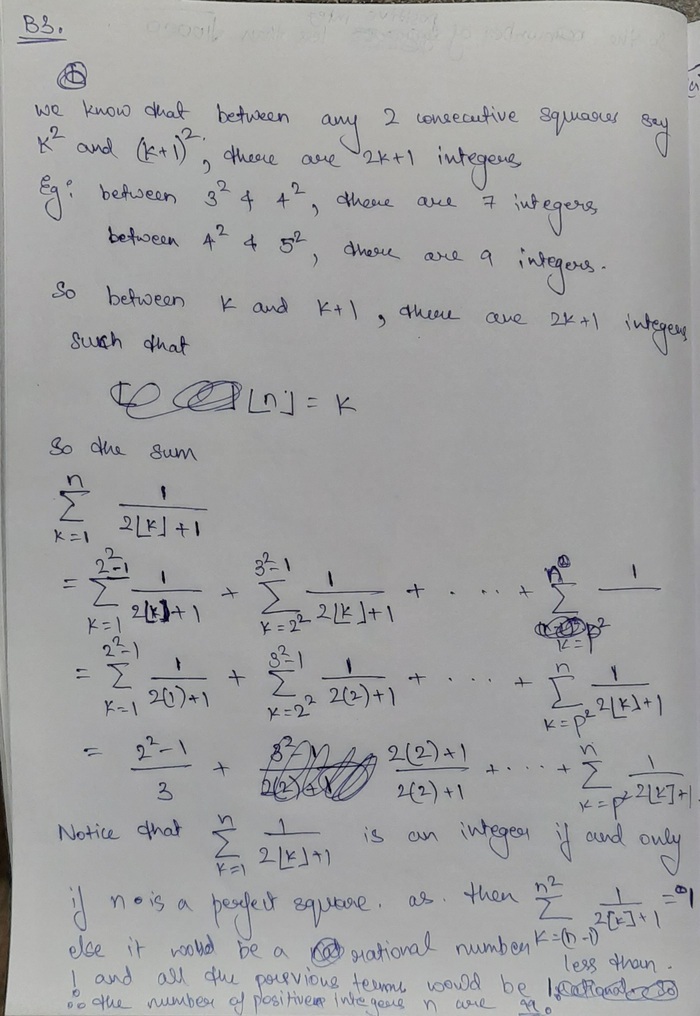 B3.
①
We know that between any 2 consecutive squares say
k² and (k+1)², there are 2k+1 integers
Eg: between 3² & 4², there are 7 integers
between 4² & 5², there are 9 integers.
So between k and k+1, there are 2k+1 integers
such that
⌊n⌋ = k
So the sum
∑_{k=1}^{n} 1/(2⌊k⌋+1)
= ∑_{k=1}^{2²-1} 1/(2⌊k⌋+1) + ∑_{k=2²}^{3²-1} 1/(2⌊k⌋+1) + · · · · + ∑_{k=p²}^{n} 1/
= ∑_{k=1}^{2²-1} 1/(2(1)+1) + ∑_{k=2²}^{3²-1} 1/(2(2)+1) + · · · · + ∑_{k=p²}^{n} 1/(2⌊k⌋+1)
= (2²-1)/3 + (2(2)+1)/(2(2)+1) + · · · · + ∑_{k=p²}^{n} 1/(2⌊k⌋+1)
Notice that ∑_{k=1}^{n} 1/(2⌊k⌋+1) is an integer if and only
if n is a perfect square. as then ∑_{k=(n-1)}^{n²} 1/(2⌊k⌋+1) = 1
else it would be a rational number less than
1 and all the previous terms would be 1.
∴ the number of positive integers n are